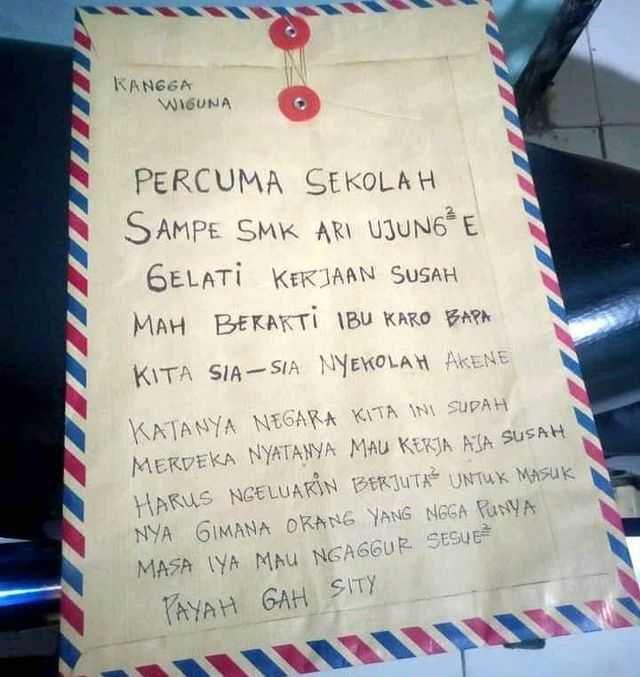 RANGGA
WIGUNA
PERCUMA SEKOLAH
SAMPE SMK ARI UJUNG² E
GELATI KERJAAN SUSAH
MAH BERARTI IBU KARO BAPA
KITA SIA-SIA NYEKOLAH AKENE
KATANYA NEGARA KITA INI SUDAH
MERDEKA NYATANYA MAU KERJA AJA SUSAH
HARUS NGELUARIN BERJUTA² UNTUK MASUK
NYA GIMANA ORANG YANG NGGA PUNYA
MASA IYA MAU NGAGGUR SESUE²
PAYAH GAH SITY